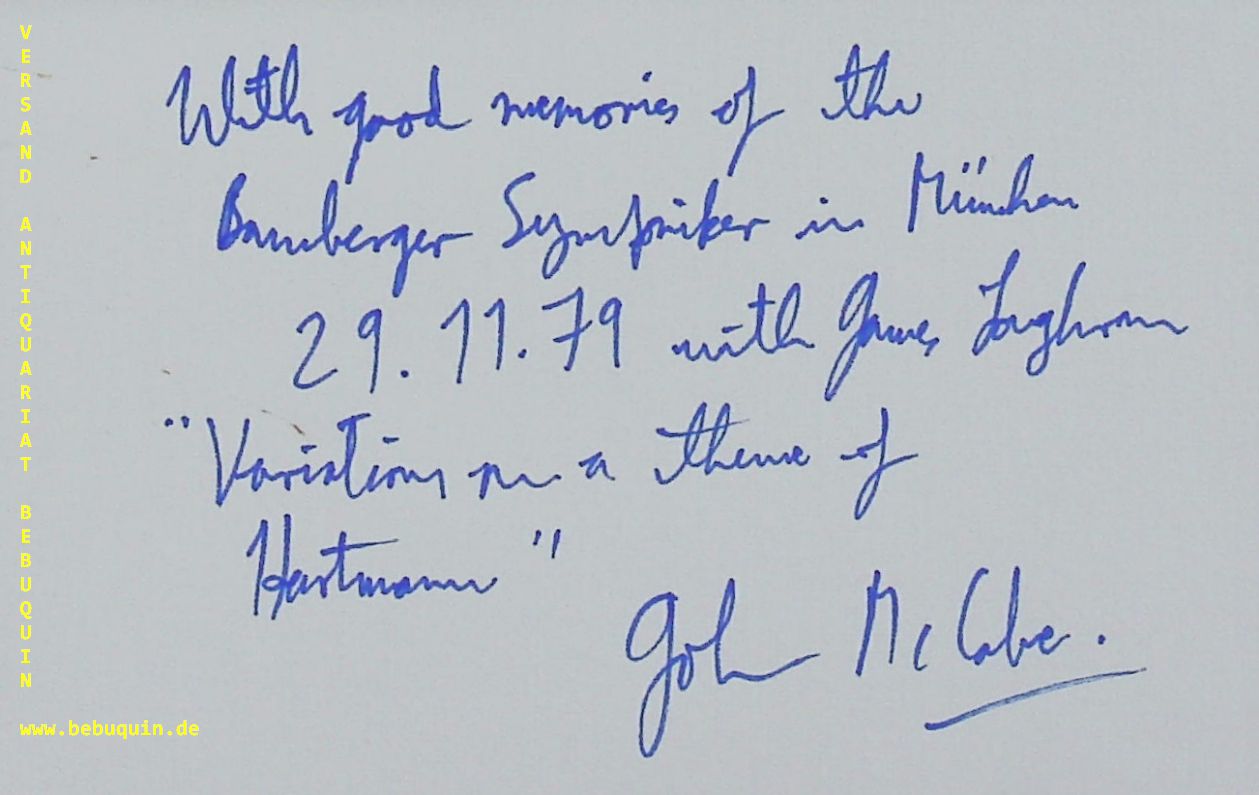 VERSAND ANTIQUARIAT BEBUQUIN
With good memories of the
Bamberger Symphoniker in München
29.11.79 with James Loughran
"Variations on a theme of
Hartmann"
John McCabe.
www.bebuquin.de